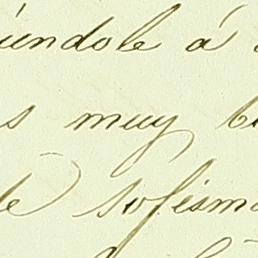 iéndole á
s muy b
de sofisma